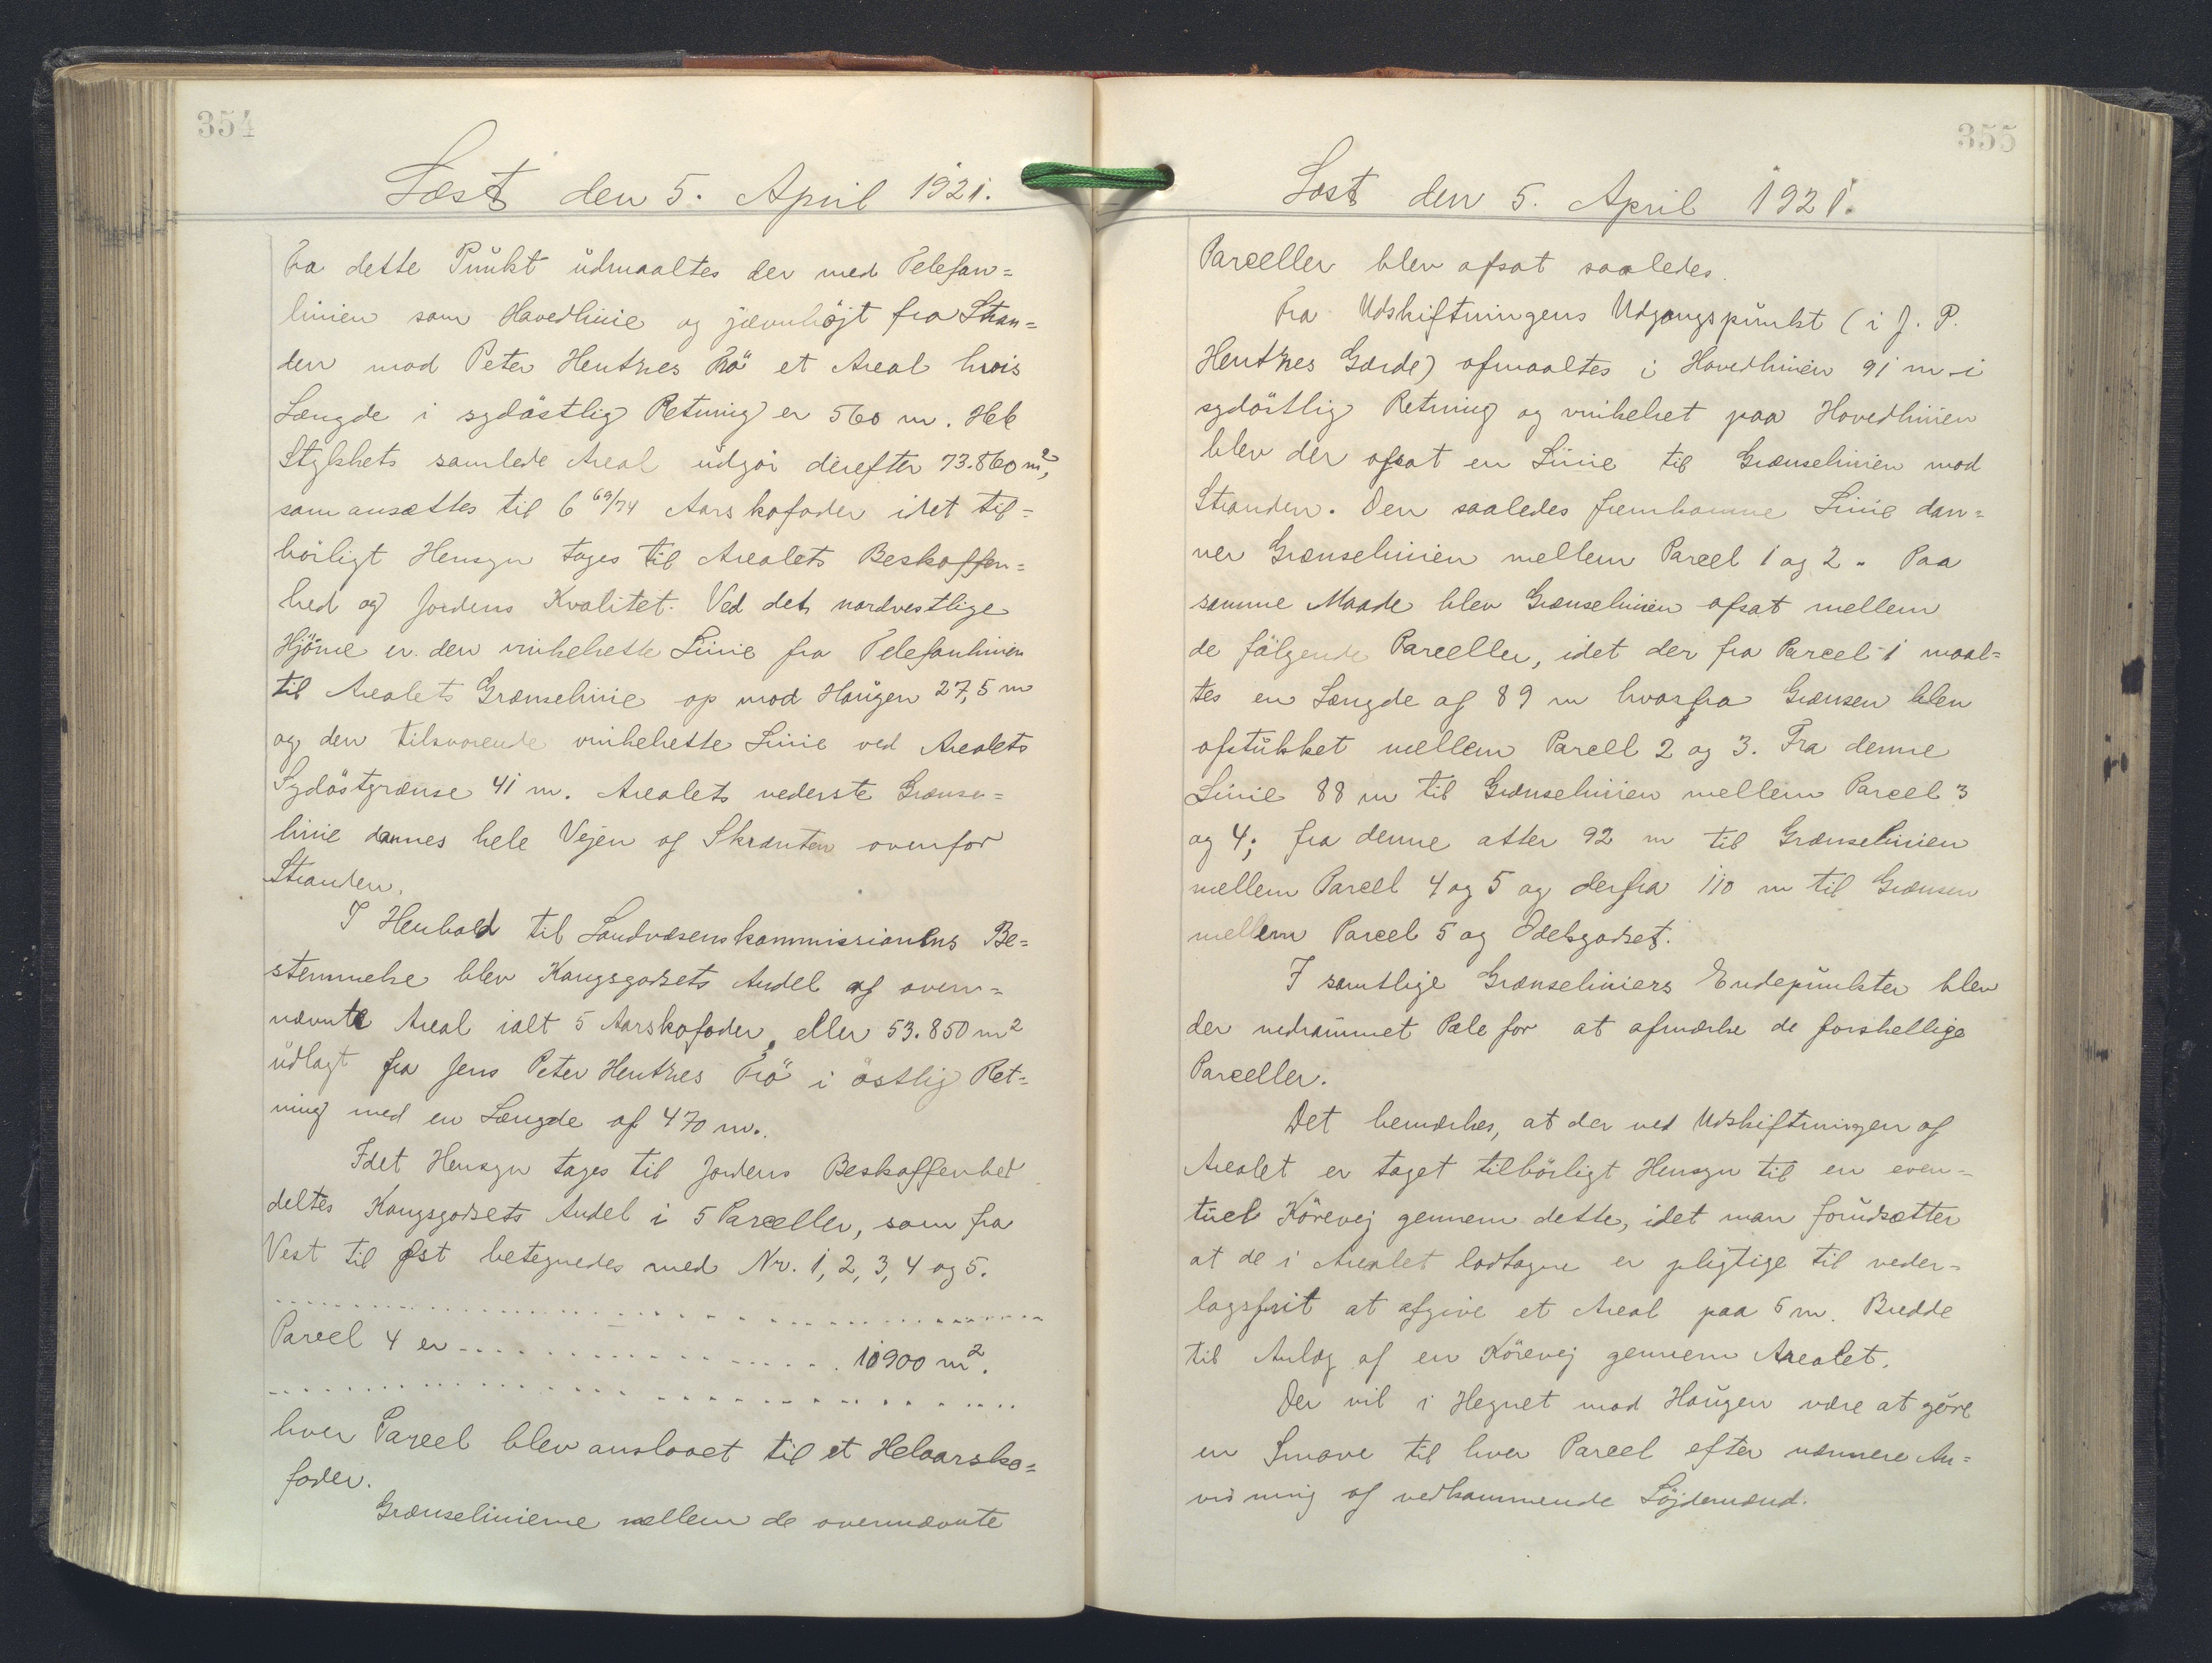 354
Læst den 5. April 1921.
Fra dette Punkt udmaaltes der med Telefon=
linien som Hovedlinie og jævnhøjt fra Stran=
den mod Peter Hentzes Trö et Areal hvis
Længde i sydöstlig Retning er 560 m. Hele
Stykkets samlede Areal udgør derefter 73.860 m²,
som ansættes til 6 69/74 Aarskofoder idet til=
börligt Hensyn tages til Arealets Beskaffen=
hed og Jordens Kvalitet. Ved det nordvestlige
Hjörne er den vinkelrette Linie fra Telefonlinien
til Arealets Grænselinie op mod Haugen 27,5 m
og den tilsvarende vinkelrette Linie ved Arealets
Sydöstgrænse 41 m. Arealets nederste Grænse=
linie dannes hele Vejen af Skrænten ovenfor
Stranden.
I Henhold til Landvæsenskommissionens Be=
stemmelse blev Kongsgodsets Andel af oven=
nævnte Areal ialt 5 Aarskofoder, eller 53.850 m²
udlagt fra Jens Peter Hentzes Trö i östlig Ret=
ning med en Længde af 470 m.
Idet Hensyn tages til Jordens Beskaffenhed
deltes Kongsgodsets Andel i 5 Parceller, som fra
Vest til Øst betegnedes med Nr. 1, 2, 3, 4 og 5.
Parcel 4 er 10900 m².
hver Parcel blev anslaaet til et Helaarsko=
foder.
Grænselinierne mellem de ovennævnte
355
Læst den 5. April 1921.
Parceller blev afsat saaledes.
Fra Udskiftningens Udgangspunkt (i J. P.
Hentzes Gærde) afmaaltes i Hovedlinien 91 m i
sydöstlig Retning og vinkelret paa Hovedlinien
blev der afsat en Linie til Grænselinien mod
Stranden. Den saaledes fremkomne Linie dan=
ner Grænselinien mellem Parcel 1 og 2. Paa
samme Maade blev Grænselinien afsat mellem
de fölgende Parceller, idet der fra Parcel 1 maal=
tes en Længde af 89 m hvorfra Grænsen blev
afstukket mellem Parcel 2 og 3. Fra denne
Linie 88 m til Grænselinien mellem Parcel 3
og 4; fra denne atter 92 m til Grænselinien
mellem Parcel 4 og 5 og derfra 110 m til Grænsen
mellem Parcel 5 og Odelsgodset.
I samtlige Grænseliniers Endepunkter blev
der nedrammet Pæle for at afmærke de forskellige
Parceller.
Det bemærkes, at der ved Udskiftningen af
Arealet er taget tilbörligt Hensyn til en even=
tuel Körevej gennem dette, idet man forudsætter
at de i Arealet lodtagne er pligtige til veder=
lagsfrit at afgive et Areal paa 5 m. Bredde
til Anlæg af en Körevej gennem Arealet.
Der vil i Hegnet mod Haugen være at göre
en Smave til hver Parcel efter nærmere An=
visning af vedkommende Löjdemænd.